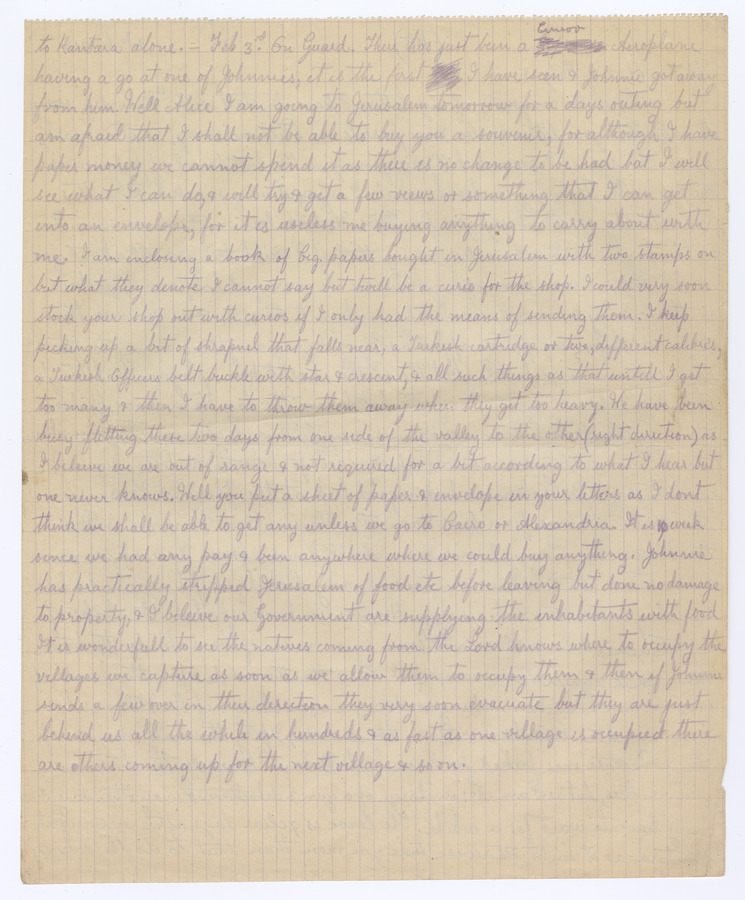 to Kantara alone. – Feb 3rd. On Guard. There has just been a Aeroplane
having a go at one of Johnnies, it is the first I have seen & Johnnie got away
from him. Well Alice I am going to Jerusalem tomorrow for a days outing but
am afraid that I shall not be able to buy you a souvenir, for although I have
paper money we cannot spend it as there is no change to be had but I will
see what I can do, & will try & get a few views or something that I can get
into an envelope, for it is useless me buying anything to carry about with
me. I am enclosing a book of Cig. papers bought in Jerusalem with two stamps on
but what they denote I cannot say but twill be a curio for the shop. I could very soon
stock your shop out with curios if I only had the means of sending them. I keep
picking up a bit of shrapnel that falls near, a Turkish cartridge or two, different calibres,
a Turkish Officers belt buckle with star & crescent, & all such things as that untill I get
too many & then I have to throw them away when they get too heavy. We have been
busy flitting these two days from one side of the valley to the other (right direction) as
I beleive we are out of range & not required for a bit according to what I hear but
one never knows. Will you put a sheet of paper & envelope in your letters as I dont
think we shall be able to get any unless we go to Cairo or Alexandria. It is 10 week
since we had any pay & been anywhere where we could buy anything. Johnnie
has practically stripped Jerusalem of food etc before leaving but done no damage
to property, & I beleive our Government are supplying the inhabitants with food
It is wonderfull to see the natives coming from the Lord knows where to occupy the
villages we capture as soon as we allow them to occupy them & then if Johnnie
sends a few over in their direction they very soon evacuate but they are just
behind us all the while in hundreds & as fast as one village is occupied there
are others coming up for the next village & so on.